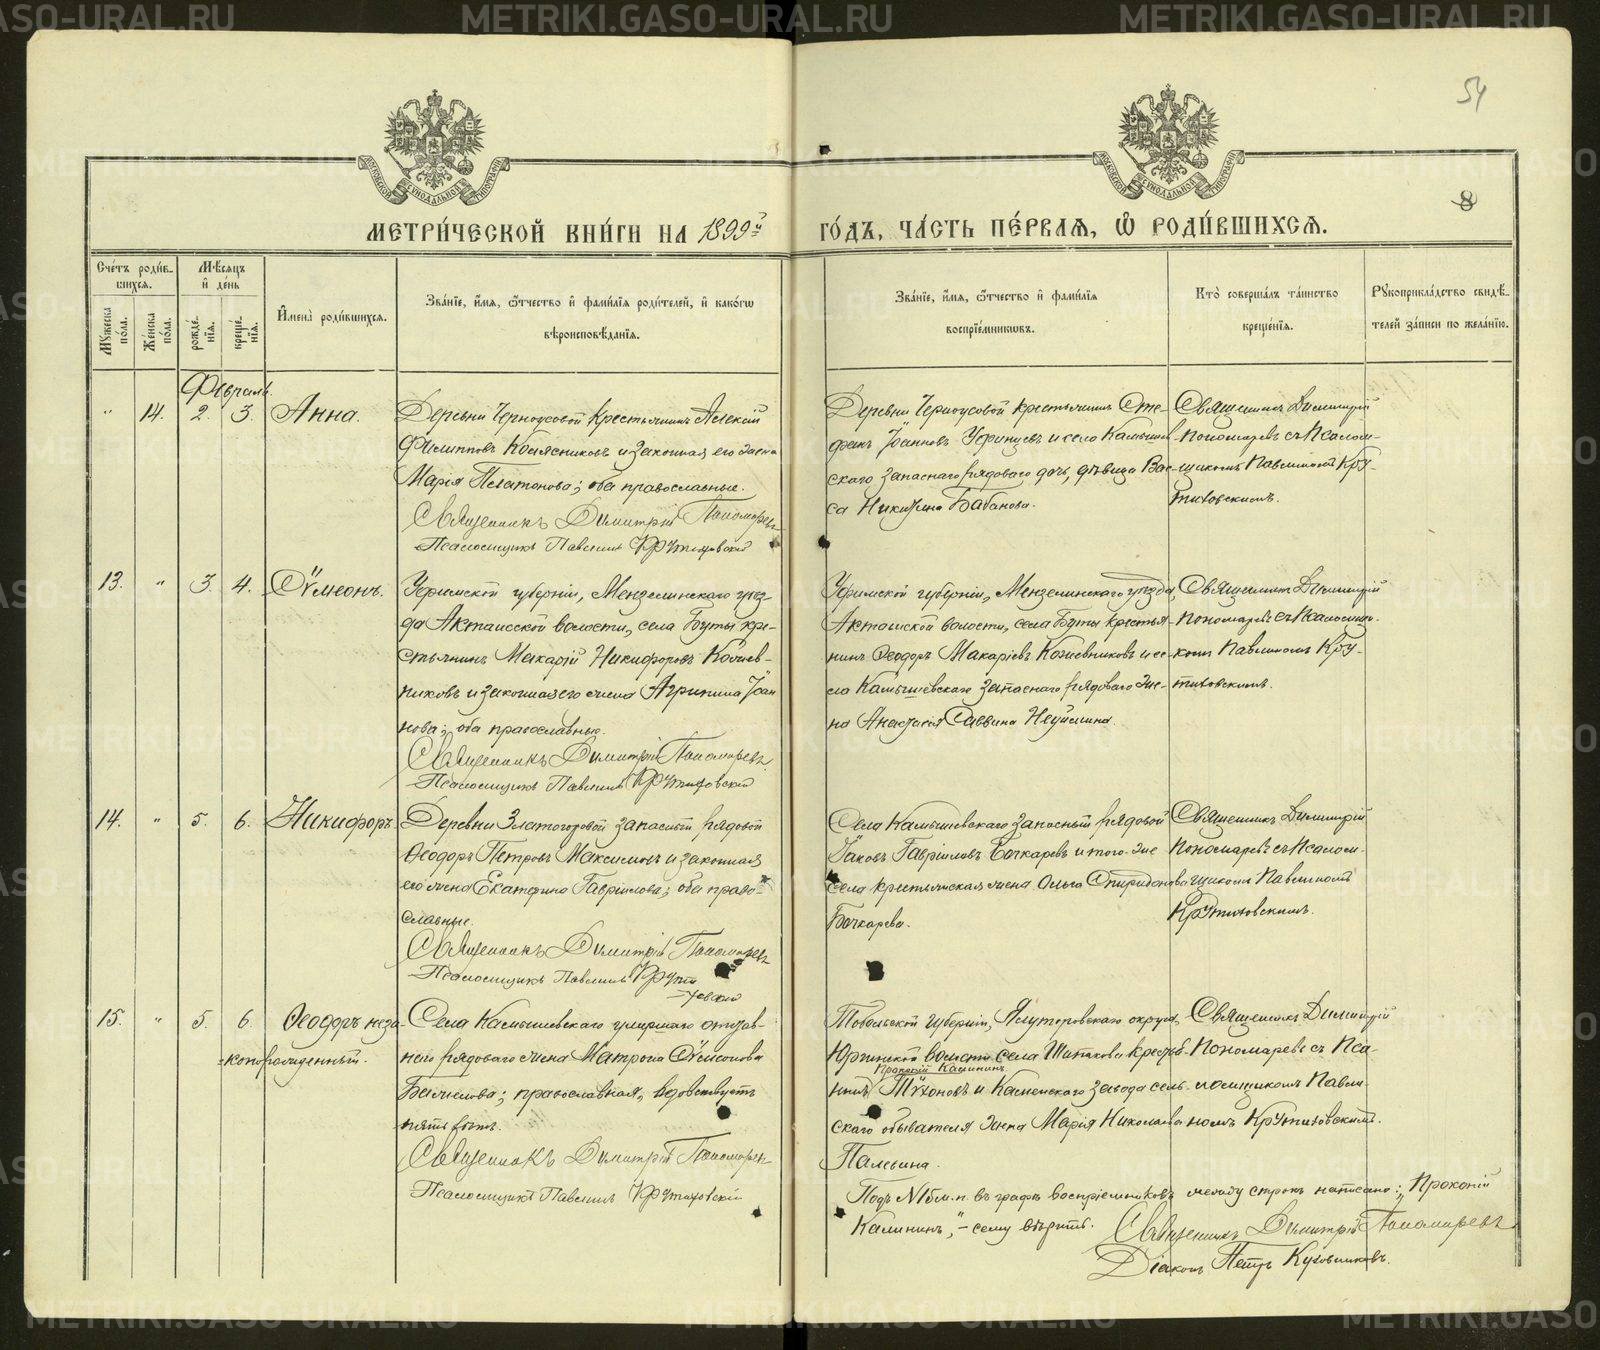 METRIKI.GASO-URAL.RU
54
8
МОСКОВСКОЙ СѴНОДАЛЬНОЙ ТИПОГРАФІИ
МОСКОВСКОЙ СѴНОДАЛЬНОЙ ТИПОГРАФІИ
МЕТРИ́ЧЕСКОЙ КНИ́ГИ НА 1899й
ГО́ДЪ, ЧА́СТЬ ПЕ́РВАѦ, Ѡ҆ РОДИ́ВШИХСѦ.
Сче́тъ роди́в-
шихсѧ.
Мꙋ́жеска по́ла.
Же́нска по́ла.
Мѣ́сѧцъ и҆ де́нь
рожде́-
нїѧ.
креще́-
нїѧ.
И҆мена̀ роди́вшихсѧ.
Зва́нїе, и҆́мѧ, ѻ҆́тчество и҆ фами́лїѧ роди́телей, и҆ како́гѡ
вѣроисповѣ́данїѧ.
Зва́нїе, и҆́мѧ, ѻ҆́тчество и҆ фами́лїѧ
воспрїе́мникѡвъ.
Кто̀ соверша́лъ та́инство
креще́нїѧ.
Рꙋкоприкла́дство свидѣ́-
телей за́писи по жела́нїю.
Февраль.
" 14. 2. 3. Анна.
Деревни Черноусовой крестьянинъ Алексій
Филипповъ Колясниковъ и законная его жена
Марія Платонова; оба православные.
Священникъ Димитрій Пономаревъ
Псаломщикъ Павлинъ Крутиховскій
Деревни Черноусовой крестьянинъ Сте-
фанъ Іоанновъ Уфинцевъ и села Камышев-
скаго запаснаго рядоваго дочь, дѣвица Вас-
са Никитина Бабанова.
Священникъ Димитрій
Пономаревъ съ Псалом-
щикомъ Павлиномъ Кру-
тиховскимъ.
13. " 3. 4. Сѵмеонъ.
Уфимской губерніи, Мензелинскаго уѣз-
да Акташской волости, села Буты кре-
стьянинъ Макарій Никифоровъ Кожев-
никовъ и законная его жена Агрипина Іоан
нова; оба православные.
Священникъ Димитрій Пономаревъ
Псаломщикъ Павлинъ Крутиховскій
Уфимской губерніи, Мензелинскаго уѣзда,
Акташской волости, села Буты крестья-
нинъ Ѳеодоръ Макаріевъ Кожевниковъ и се-
ла Камышевскаго запаснаго рядоваго же-
на Анастасія Саввина Неуймина.
Священникъ Димитрій
Пономаревъ съ Псаломщи-
комъ Павлиномъ Кру-
тиховскимъ.
14. " 5. 6. Никифоръ.
Деревни Златогоровой запасный рядовой
Ѳеодоръ Петровъ Максимовъ и законная
его жена Екатерина Гавріилова; оба право-
славные.
Священникъ Димитрій Пономаревъ
Псаломщикъ Павлинъ Крути
-ховскій
Села Камышевскаго запасный рядовой
Іаковъ Гавріиловъ Бочкаревъ и того-же
села крестьянская жена Ольга Спиридонова
Бочкарева.
Священникъ Димитрій
Пономаревъ съ Псалом-
щикомъ Павлиномъ
Крутиховскимъ.
15. " 5. 6. Ѳеодоръ неза-
конорожденный.
Села Камышевскаго умершаго отстав-
наго рядоваго жена Матрона Сѵмеонова
православная, вдовствуетъ
пять лѣтъ.
Священникъ Димитрій Пономаревъ
Псаломщикъ Павлинъ Крутиховскій
Тобольской губерніи, Ялуторовскаго округа,
Юргинской волости села Шипакова крестья-
Прокопій Калининъ
нинъ Тихоновъ и Каменскаго завода сель-
скаго обывателя жена Марія Николаева
Палевина.
Священникъ Димитрій
Пономаревъ съ Пса-
ломщикомъ Павли-
номъ Крутиховскимъ.
Подъ N15м.п. въ графѣ воспріемниковъ между строкъ написано: „Прокопій
Калининъ,"- сему вѣрить. Священникъ Димитрій Пономаревъ
Діаконъ Петръ Куховниковъ.